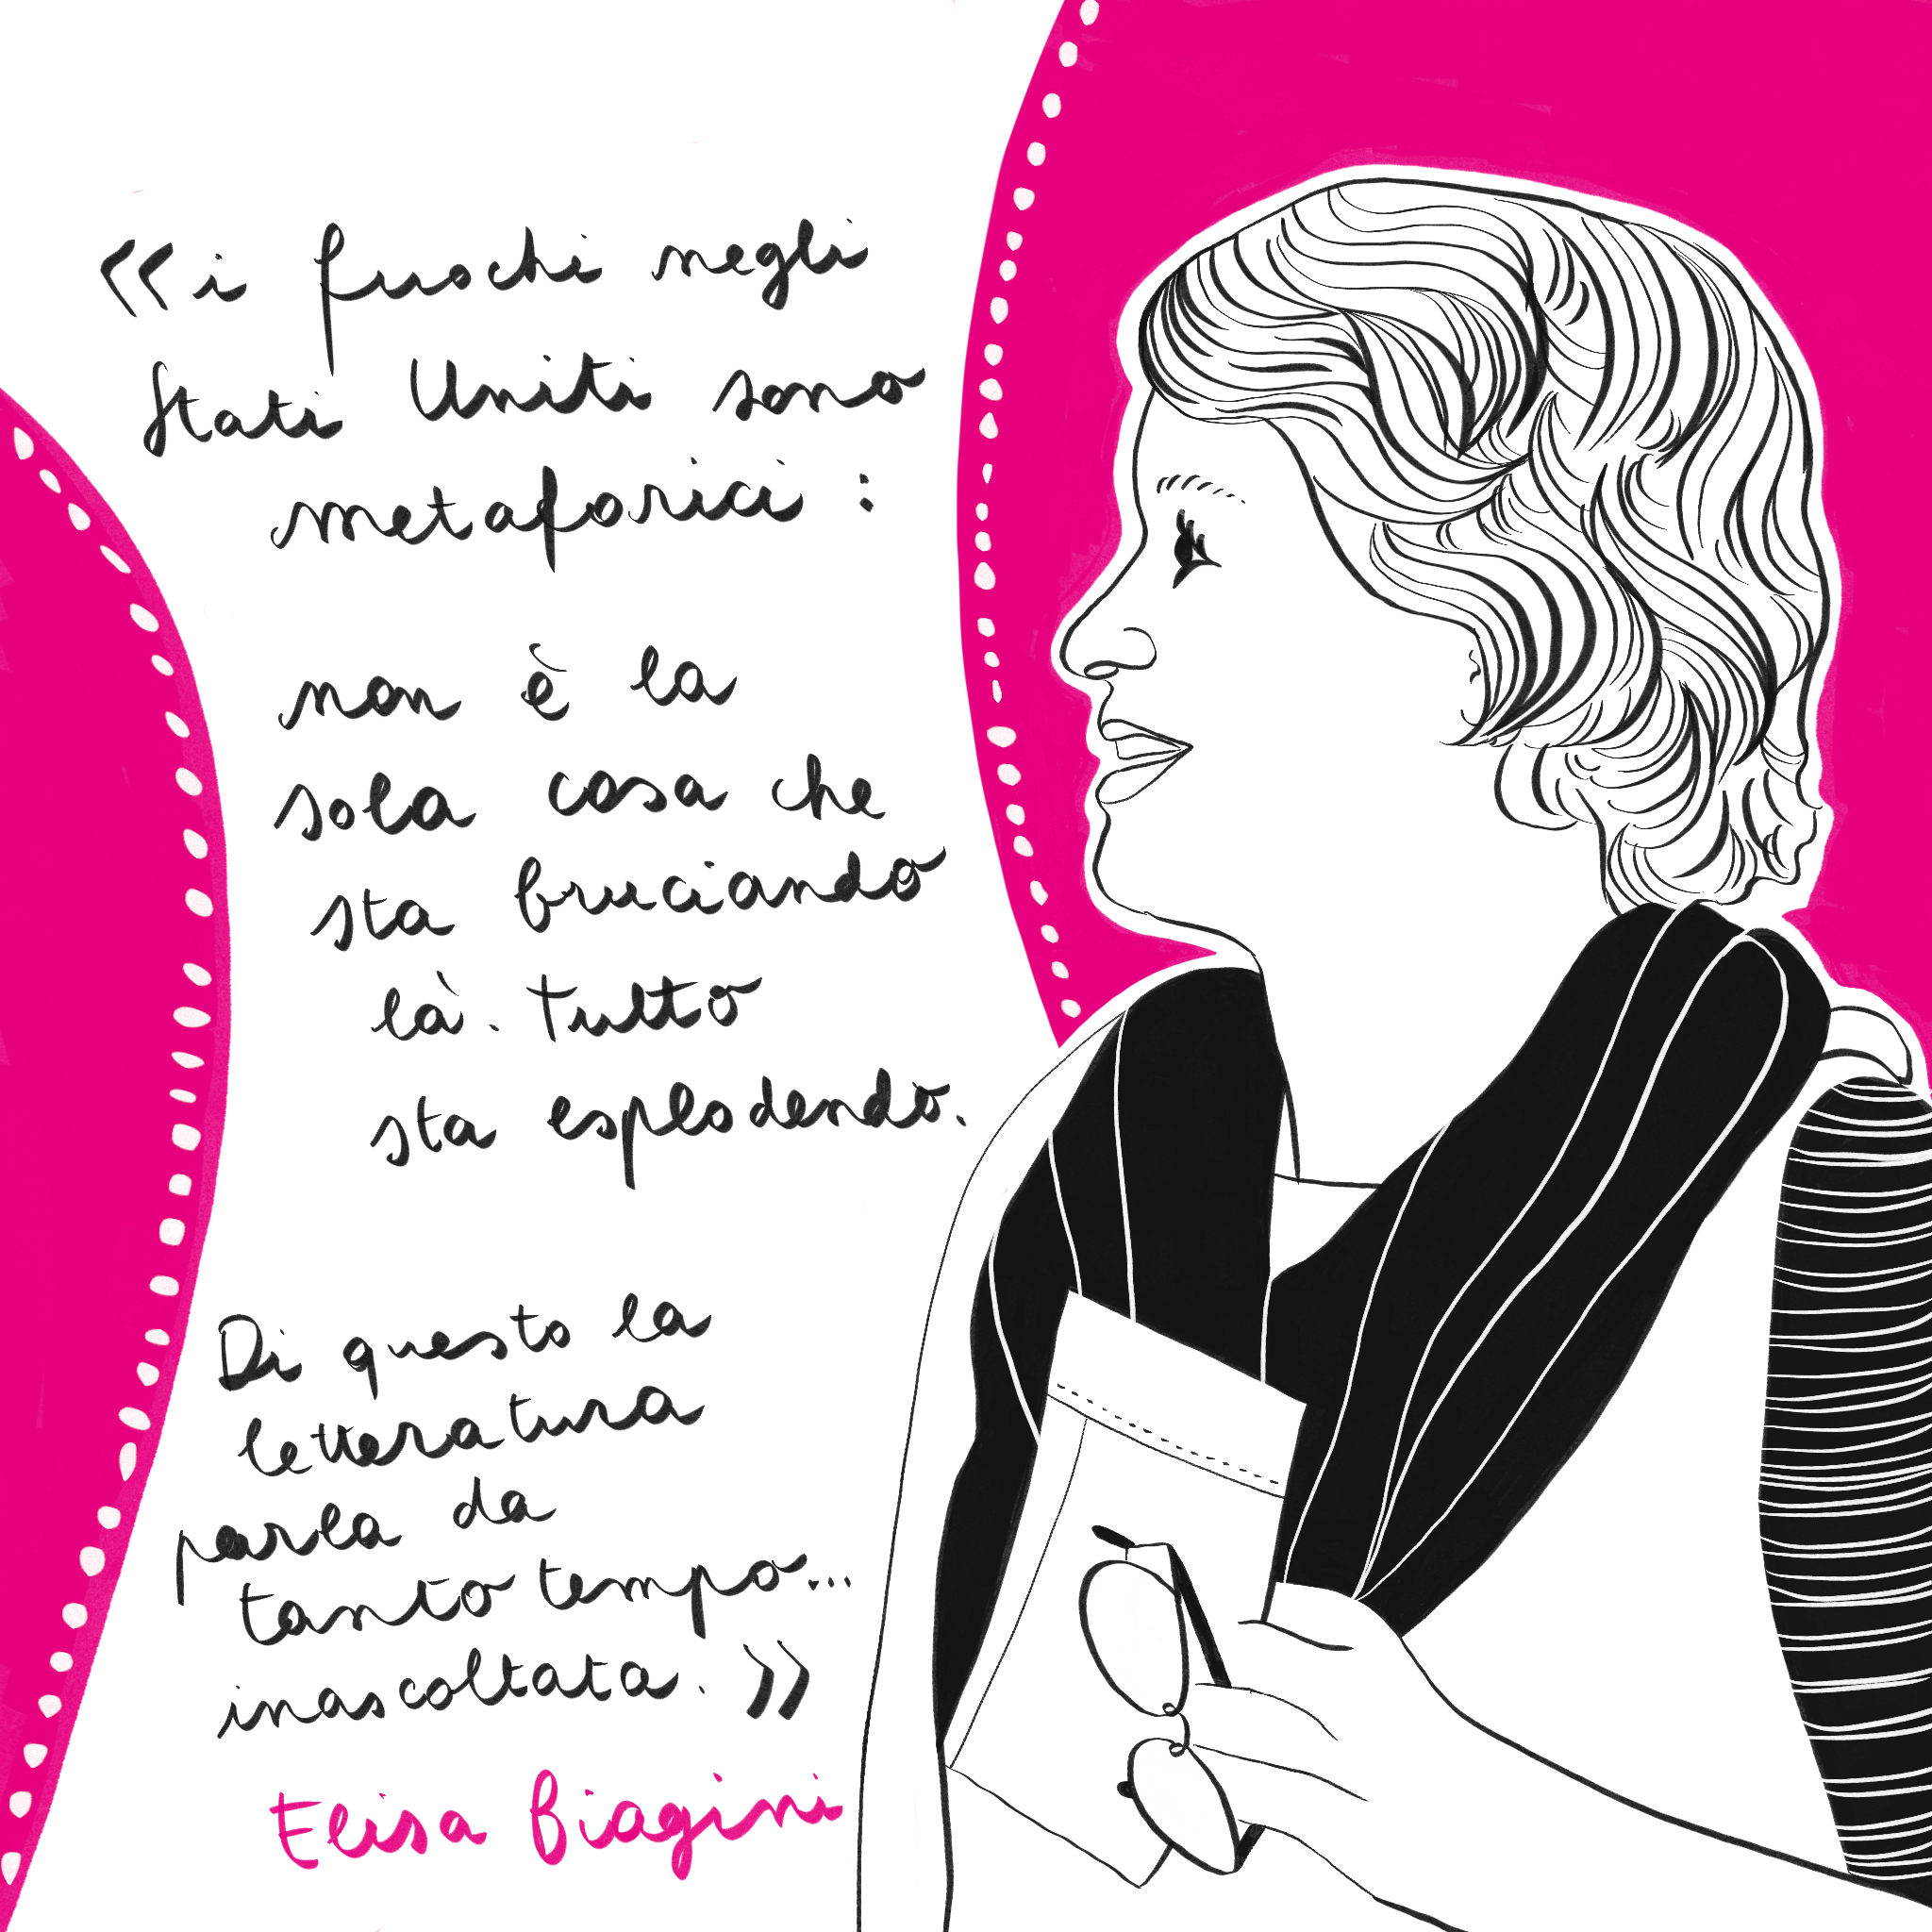 «i fuochi negli
Stati Uniti sono
metaforici:
non è la
sola cosa che
sta bruciando
là. Tutto
sta esplodendo.
Di questo la
letteratura
parla da
tanto tempo...
inascoltata.»
Elisa Biagini